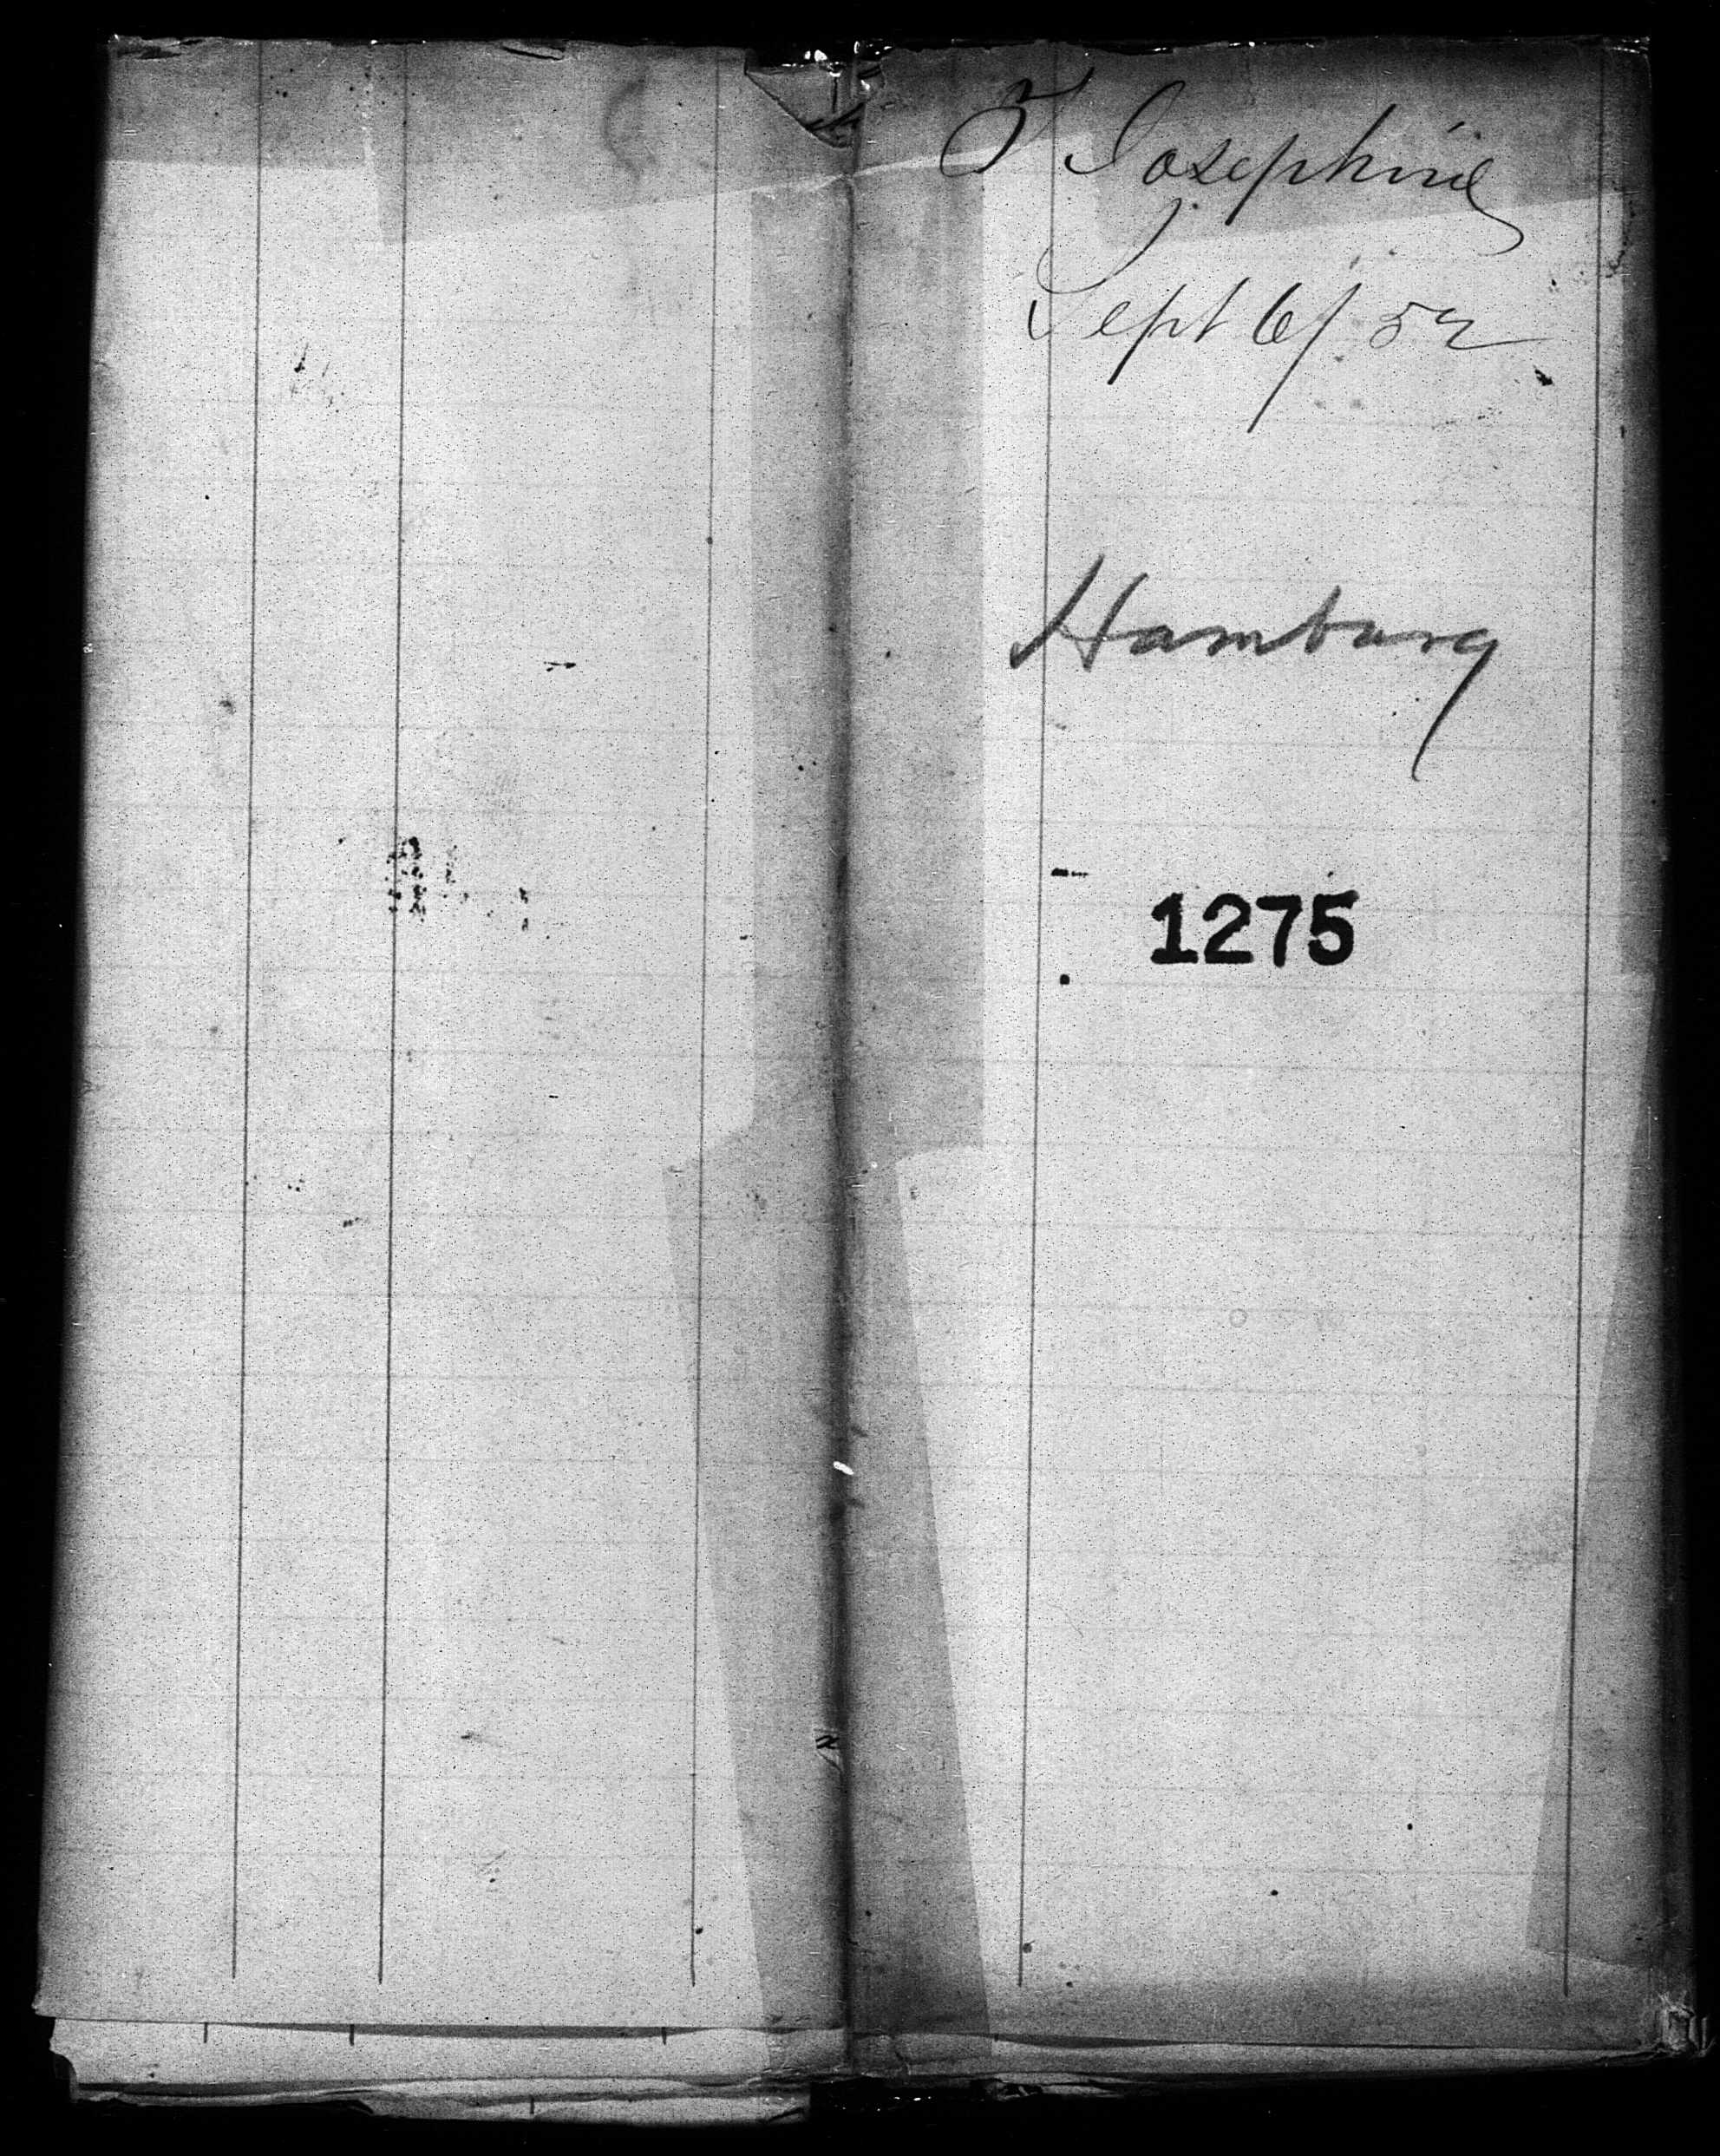 J Josephine
Sept 6/52
Hamburg
1275